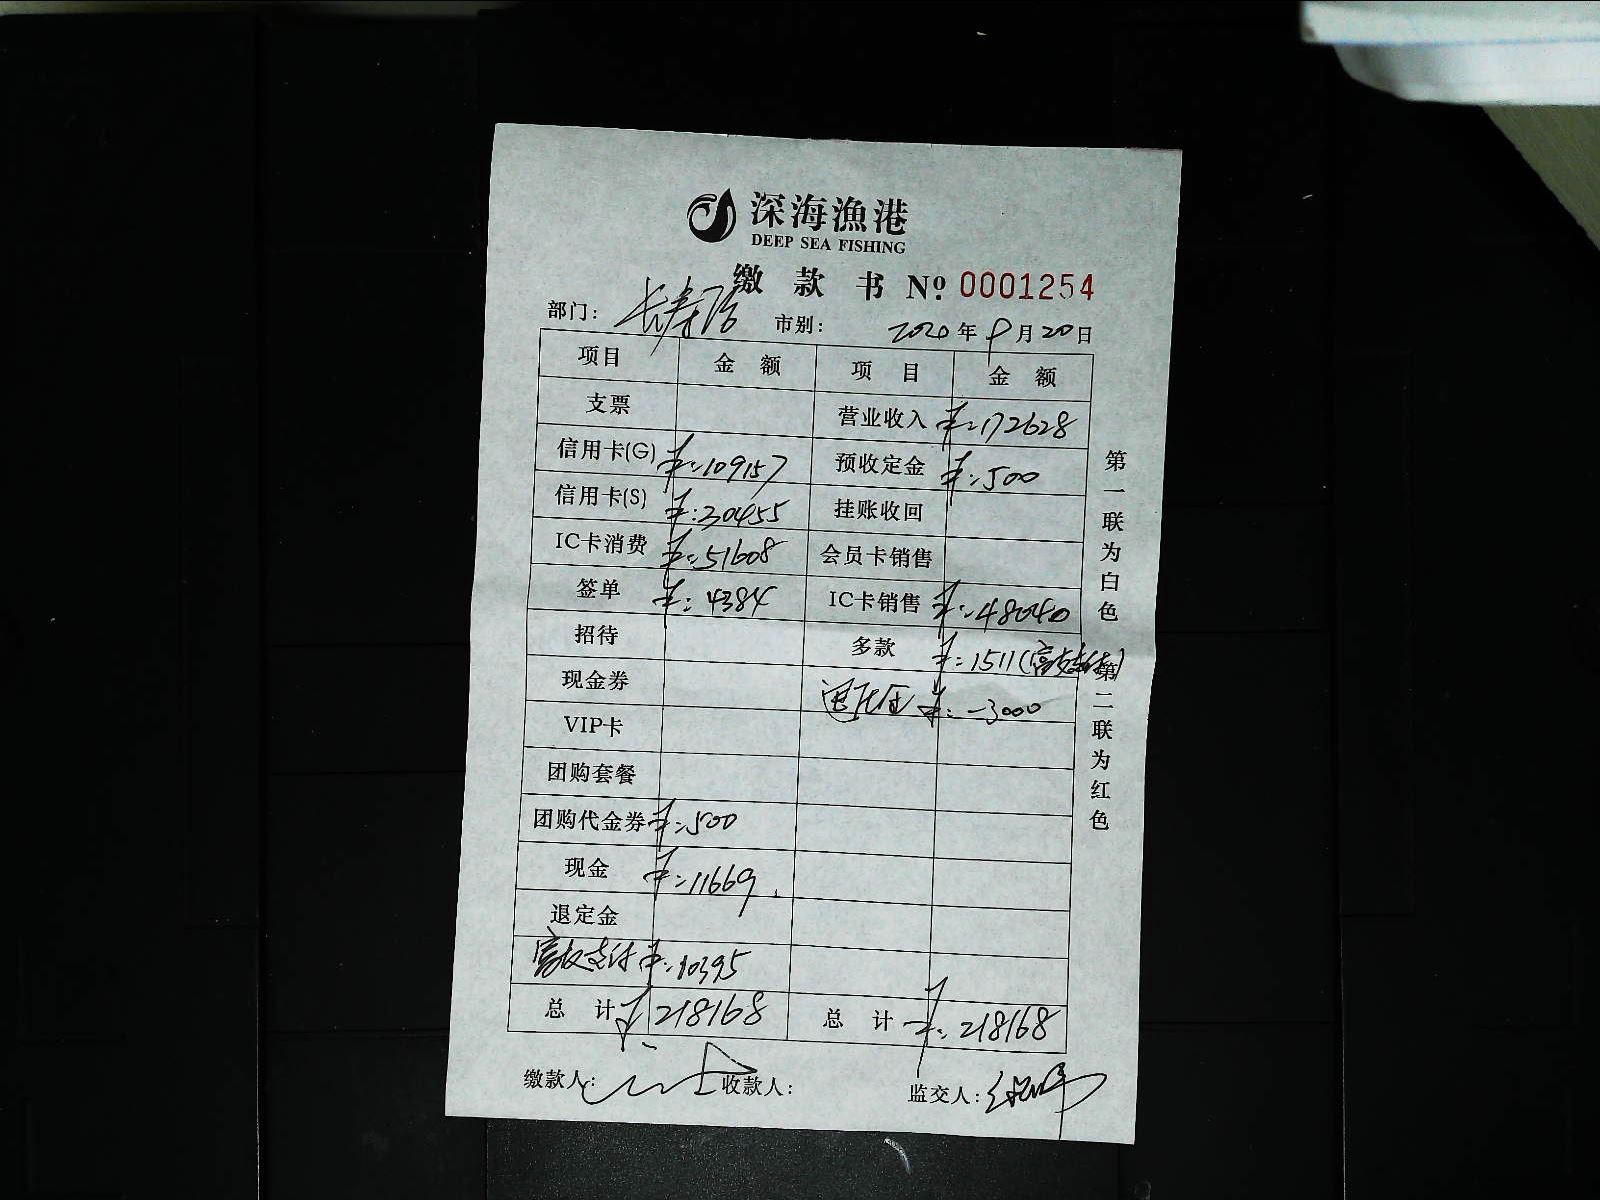 深海漁港
DEEP SEA FISHING
缴款书 Nº: 0001254
部门: 长寿路 市别: 2020年9月20日
项目 金额 项目 金额
支票 营业收入 ¥:172628
信用卡(G) ¥:109157 预收定金 ¥:500
信用卡(S) ¥:30455 挂账收回
IC卡消费 ¥:51608 会员卡销售
签单 ¥:4384 IC卡销售 ¥:48040
招待 多款 ¥:1511(富友支付)
现金券 ¥:-3000
VIP卡
团购套餐
团购代金券 ¥:500
现金 ¥:11669
退定金
富友支付 ¥:10395
总计 ¥:218168 总计 ¥:218168
缴款人: 收款人: 监交人:
第一联为白色
第二联为红色